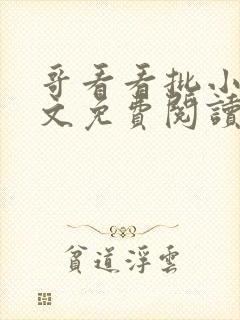 哥看看批小
文免費閱讀
貧道浮雲